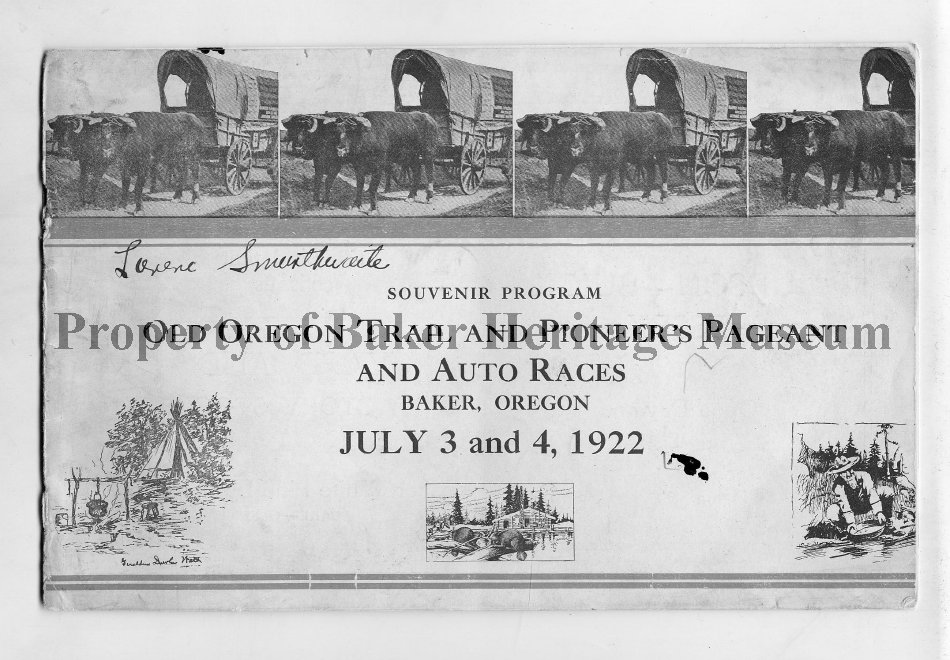 Lorene Smurthwaite
SOUVENIR PROGRAM
OLD OREGON TRAIL AND PIONEER'S PAGEANT
Property of Baker Heritage Museum
AND AUTO RACES
BAKER, OREGON
JULY 3 and 4, 1922